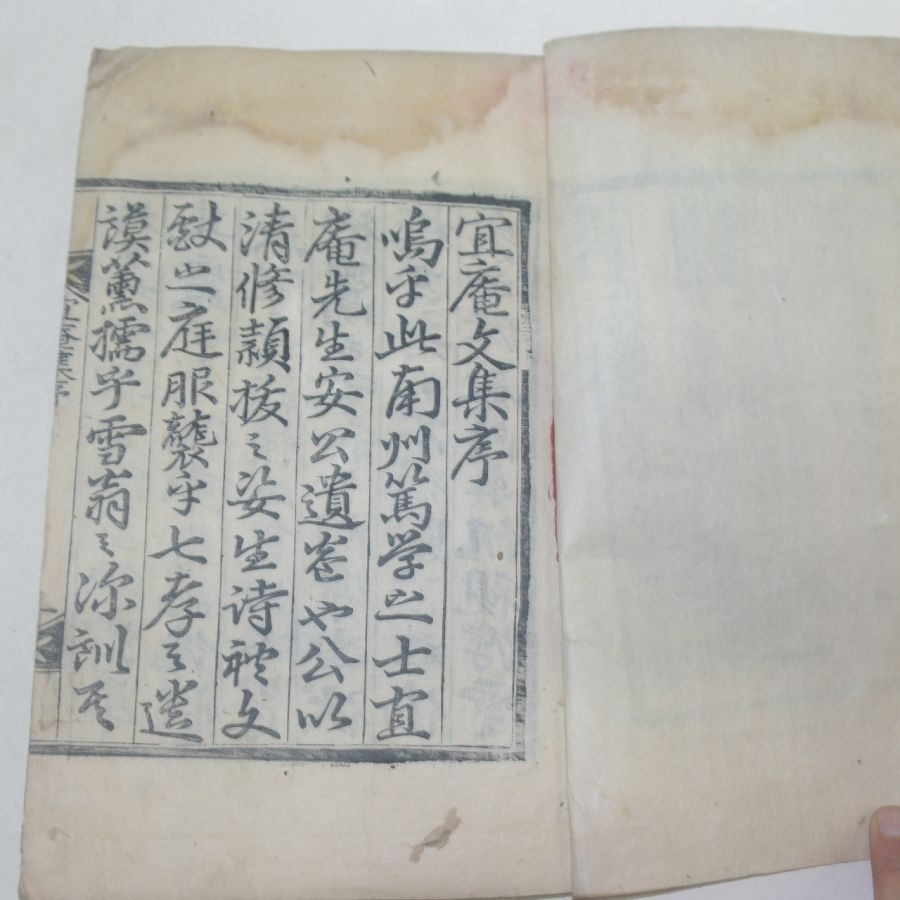 宜庵文集序
嗚乎此南州篤学之士宜
庵先生安公遺卷也公以
清修頴拔之姿生詩礼文
献之庭服襲乎七孝之遺
謨薰擩乎雪翁之深訓其
宜庵集序